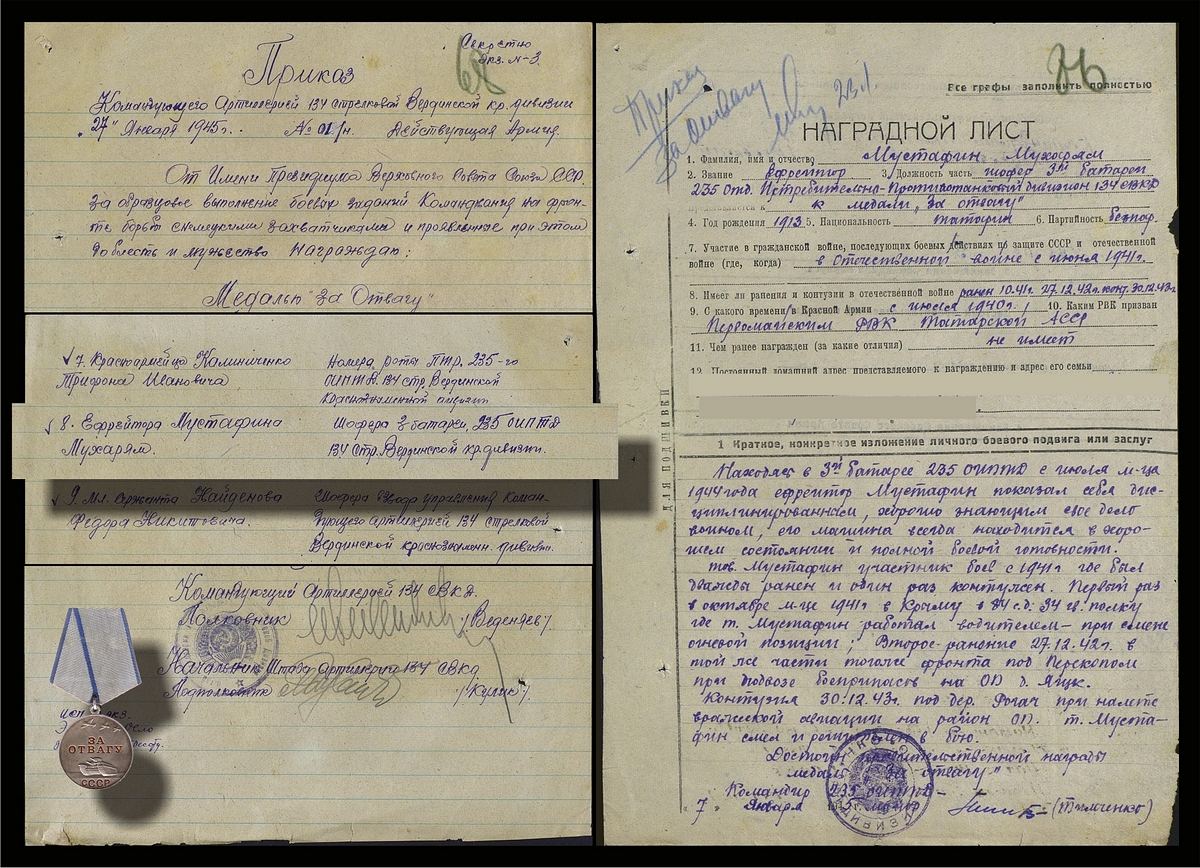 Секретно
экз. N-3
68
Приказ
Командующего Артиллерией 134 стрелковой Вердинской кр. дивизии
"27" Января 1945г. № 01/н. Действующая Армия
От Имени Президиума Верховного Совета Союза ССР
за образцовое выполнение боевых заданий Командования на фрон-
те борьбы с немецкими захватчиками и проявленные при этом
доблесть и мужество Награждаю:
Медалью "За Отвагу"
7. Красноармейца Калиниченко Номера роты ПТР, 235-го
Трифона Ивановича ОИПТДв. 134 стр. Вердинской
Краснознаменной дивизии
8. Ефрейтора Мустафина Шофера 3 батареи, 235 ОИПТД
Мухарям. 134 стр. Вердинской кр. дивизии.
9. Мл. Сержанта Найденова Шофера управления Коман-
Федора Никитовича. дующего Артиллерией 134 стрелковой
Вердинской краснознаменн. дивизии.
Командующий Артиллерией 134 СВкД.
Полковник /Веденяев/
Начальник Штаба Артиллерии 134 СВкД
Подполковник /Кулик/
ЗА
ОТВАГУ
СССР
Приказ
За Отвагу
23.1.
76
Все графы заполнить полностью
НАГРАДНОЙ ЛИСТ
1. Фамилия, имя и отчество Мустафин Мухарям
2. Звание Ефрейтор 3. Должность часть шофер 3й батареи
235 Отд. Истребительно-Противотанковый дивизион 134 СВКД
к медали "За отвагу"
4. Год рождения 1913 5. Национальность татарин 6. Партийность безпар.
7. Участие в гражданской войне, последующих боевых действиях по защите СССР и отечественной
войне (где, когда) в Отечественной войне с июня 1941г.
8. Имеет ли ранения и контузии в отечественной войне ранен 10.41г. 27.12.42г. конт. 30.12.43г
9. С какого времени в Красной Армии с июля 1940г. 10. Каким РВК призван
Первомайским РВК Татарской АССР
11. Чем ранее награжден (за какие отличия) не имеет
12. Постоянный домашний адрес представляемого к награждению и адрес его семьи
ДЛЯ ПОДШИВКИ
1 Краткое, конкретное изложение личного боевого подвига или заслуг
Находясь в 3й батарее 235 ОИПТД с июля м-ца
1944 года ефрейтор Мустафин показал себя дис-
циплинированным, хорошо знающим свое дело
воином, его машина всегда находится в хоро-
шем состоянии и полной боевой готовности.
тов. Мустафин участник боев с 1941г где был
дважды ранен и один раз контужен. Первый раз
в октябре м-це 1941г в Крыму в 84 с.д. 34 св. полку
где т. Мустафин работал водителем - при смене
огневой позиции; Второе ранение 27.12.42г. в
той же части того же фронта под Перекопом
при подвозе боеприпасов на ОП д. Ящк.
Контузия 30.12.43г. под дер. Рогач при налете
вражеской авиации на район ОП. т. Муста-
фин смел и решителен в бою.
Достоин правительственной награды
медали "За отвагу"
Командир 235 ОИПТД -
"7" Января 45 майор (Тимченко)